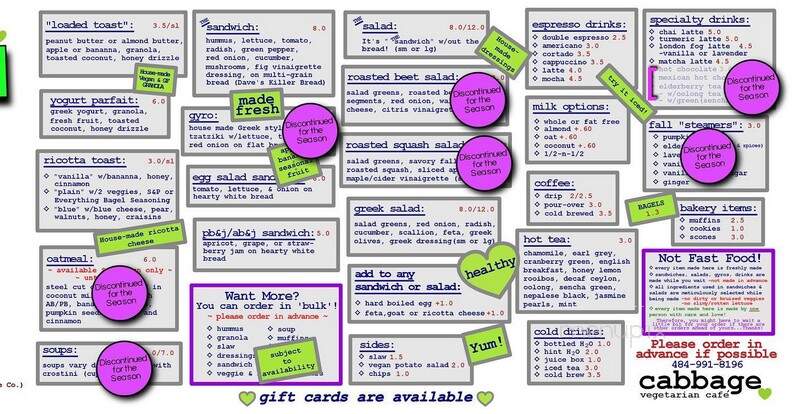 "loaded toast": 3.5/sl
peanut butter or almond butter,
apple or bananas, granola,
toasted coconut, honey drizzle
House-made
Vegan & GF
GRANOLA
yogurt parfait: 6.0
greek yogurt, granola,
fresh fruit, toasted
coconut, honey drizzle
ricotta toast: 3.0/sl
"vanilla" w/banana, honey,
cinnamon
"plain" w/2 veggies, S&P or
Everything Bagel Seasoning
"blue" w/blue cheese, pear,
walnuts, honey, craisins
House-made ricotta
cheese
oatmeal: 6.0
~ available
only ~
steel cut
coconut mi
AB/PB, bana
pumpkin seed
cinnamon
Discontinued
for the
Season
soups: 0/7.0
soups vary d
crostini (cu
Discontinued
for the
Season
e Co.)
sandwich: 8.0
hummus, lettuce, tomato,
radish, green pepper,
red onion, cucumber,
mushrooms, fig vinaigrette
dressing, on multi-grain
bread (Dave's Killer Bread)
made
fresh
gyro:
house made Greek styl
tzatziki w/lettuce, t
red onion on flat br
Discontinued
for the
Season
seasonal
fruit
egg salad sandw 6.0
tomato, lettuce, & onion on
hearty white bread
pb&j/ab&j sandwich: 5.0
apricot, grape, or straw-
berry jam on hearty white
bread
Want More?
You can order in 'bulk'!!
~ please order in advance ~
hummus
granola
slaw
dressing
sandwich
veggie &
soup
muffins
subject
to
availability
salad: 8.0/12.0
It's "the "sandwich" w/out the
bread! (sm or lg)
House-
made
dressings
roasted beet salad:
salad greens, roasted be
segments, red onion, wa
cheese, citrus vinaigret
Discontinued
for the
Season
roasted squash salad
salad greens, savory fall
roasted squash, sliced ap
maple/cider vinaigrette (s
Discontinued
for the
Season
greek salad: 8.0/12.0
salad greens, red onion, radish,
cucumber, scallion, feta, greek
olives, greek dressing(sm or lg)
healthy
add to any
sandwich or salad:
hard boiled egg +1.0
feta,goat or ricotta cheese +1.0
sides:
slaw 1.5
vegan potato salad 2.0
chips 1.0
Yum!
gift cards are available
espresso drinks:
double espresso 2.5
americano 3.0
cortado 3.5
cappuccino 3.5
latte 4.0
mocha 4.5
try it iced!
milk options:
whole or fat free
almond +.60
oat +.60
coconut +.60
1/2-n-1/2
coffee:
drip 2/2.5
pour-over 3.0
cold brewed 3.5
BAGELS
1.3
hot tea: 3.0
chamomile, earl grey,
cranberry green, english
breakfast, honey lemon
rooibos, decaf ceylon
oolong, sencha green,
nepalese black, jasmine
pearls, mint
cold drinks:
bottled H2O 1.0
hint H2O 2.0
juice box 1.0
iced tea 3.0
cold brew 3.5
specialty drinks:
chai latte 5.0
turmeric latte 5.0
london fog latte 4.5
~vanilla or lavender
matcha latte 4.5
hot chocolate 3
mexican hot cho
elderberry tea
~w/oolong t
~w/green(sench
Discontinued
for the
Season
fall "steamers": 3.0
pumpki
elde
lave
vanil
vanilla
ginger
spices)
Discontinued
for the
Season
bakery items:
muffins 2.5
cookies 1.0
scones 3.0
Not Fast Food!
every item made here is freshly made
sandwiches, salads, gyros, drinks are
made while you wait -not made in advance
all ingredients used in sandwiches &
salads are meticulously selected while
being made -no dirty or bruised veggies
-no slimy/rotten lettuce
every item made here is made by one
person with care and love!
Therefore, you might have to wait a
little bit for your order if there are
other orders ahead of yours...Thanks!
Please order in
advance if possible
484-991-8196
cabbage
vegetarian café